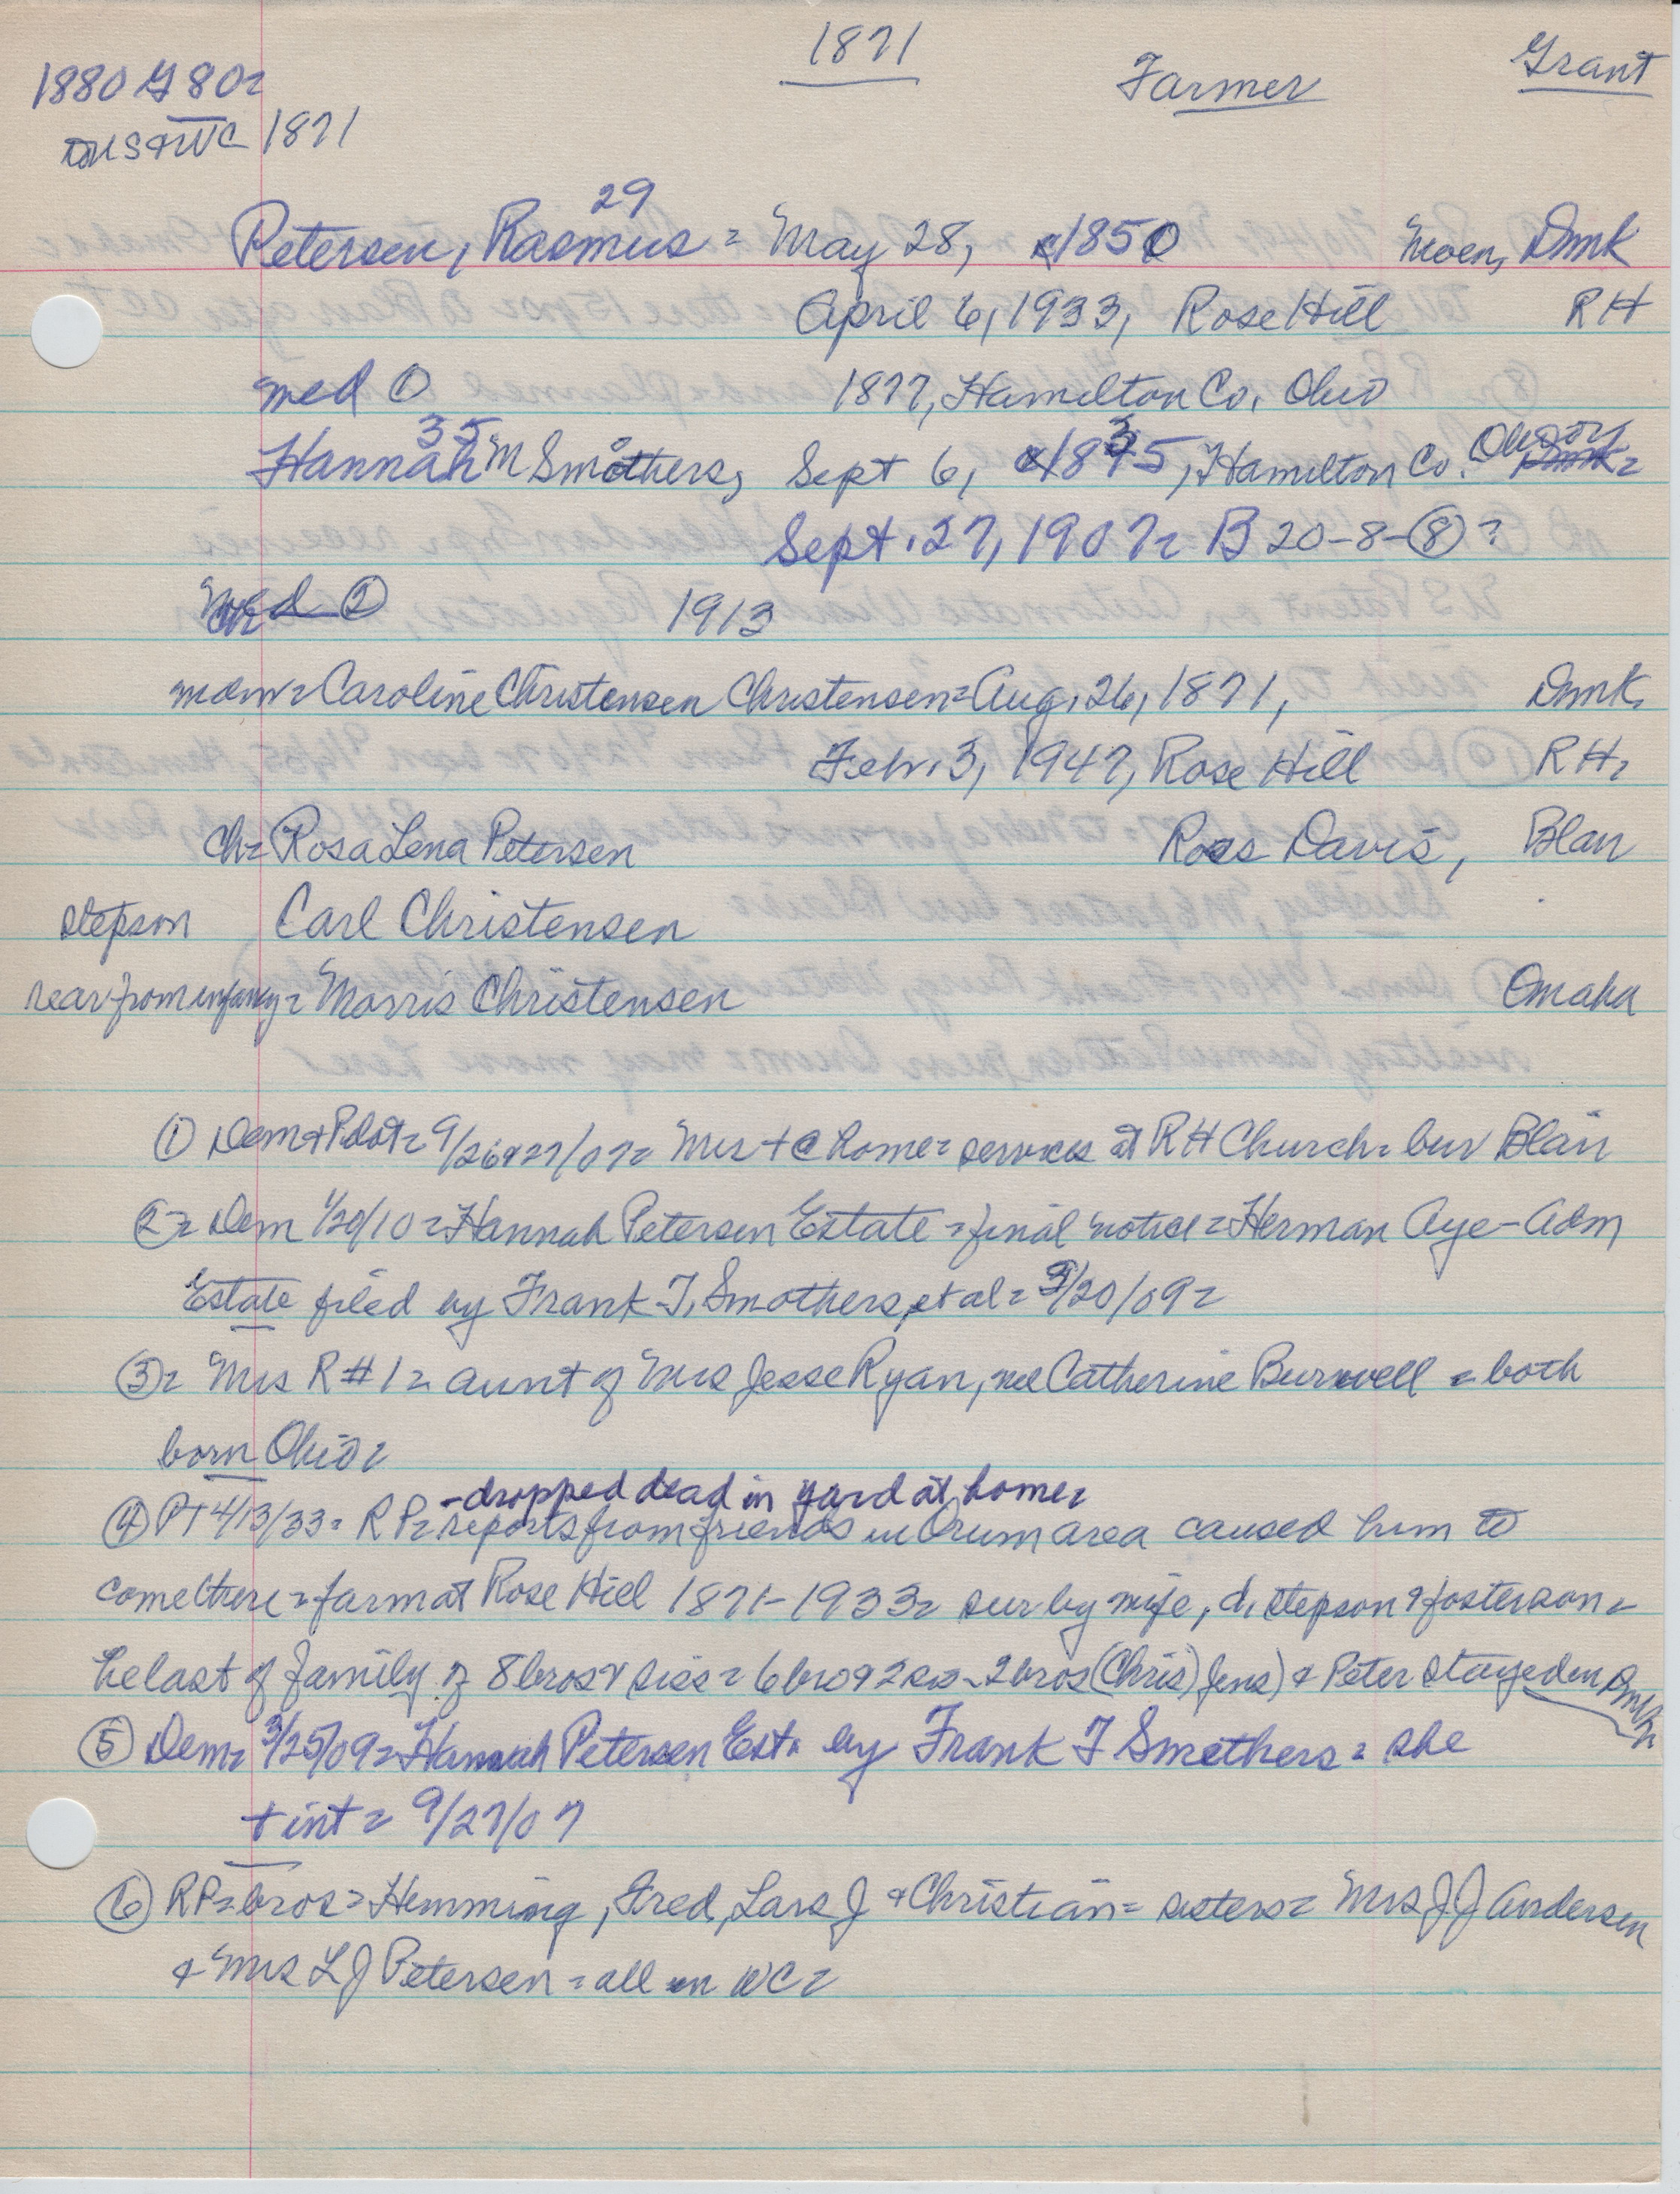 1871
Farmer
Grant
1880 G 80=
1871
29
Petersen, Rasmus = May 28, c1850 Moen, Dmk
April 6, 1933, Rose Hill RH
med ① 1877, Hamilton Co, Ohio
35
Hannah M Smothers, Sept 6, 1835, Hamilton Co. Ohio
Sept. 27, 1907= B 20-8-⑧?
med ② 1913
Caroline Christensen Christensen = Aug. 26, 1871, Dmk,
Feb. 3, 1947, Rose Hill RH=
Ch= Rosa Lena Petersen Ross Davis, Blair
stepson Carl Christensen
rear from infancy= Morris Christensen Omaha
① Dem + Pilot = 9/26&27/07= Mrs + @ home= services at RH Church= bur Blair
②= Dem 1/20/10 = Hannah Petersen Estate = final notice = Herman Aye - Adm
Estate filed by Frank T. Smothers, et al = /20/09=
③= Mrs R #1= aunt of Mrs Jesse Ryan, nee Catherine Burwell = both
born Ohio=
- dropped dead in yard at home=
④ PT 4/13/33= RP= reports from friends in Orum area caused him to
come there = farm at Rose Hill 1871-1933= sur by wife, d, stepson & foster son=
he last of family of 8 bros & siss = 6 bro & 2 sis - 2 bros (Chris) Jens) & Peter stayed in Dmk=
⑤ Dem= 3/25/09= Hannah Petersen Est. by Frank T Smothers = she
+ int = 9/27/07
⑥ RP= bros= Hemming, Fred, Lars J & Christian= sisters= Mrs J J Andersen
& Mrs L J Petersen = all in WC=